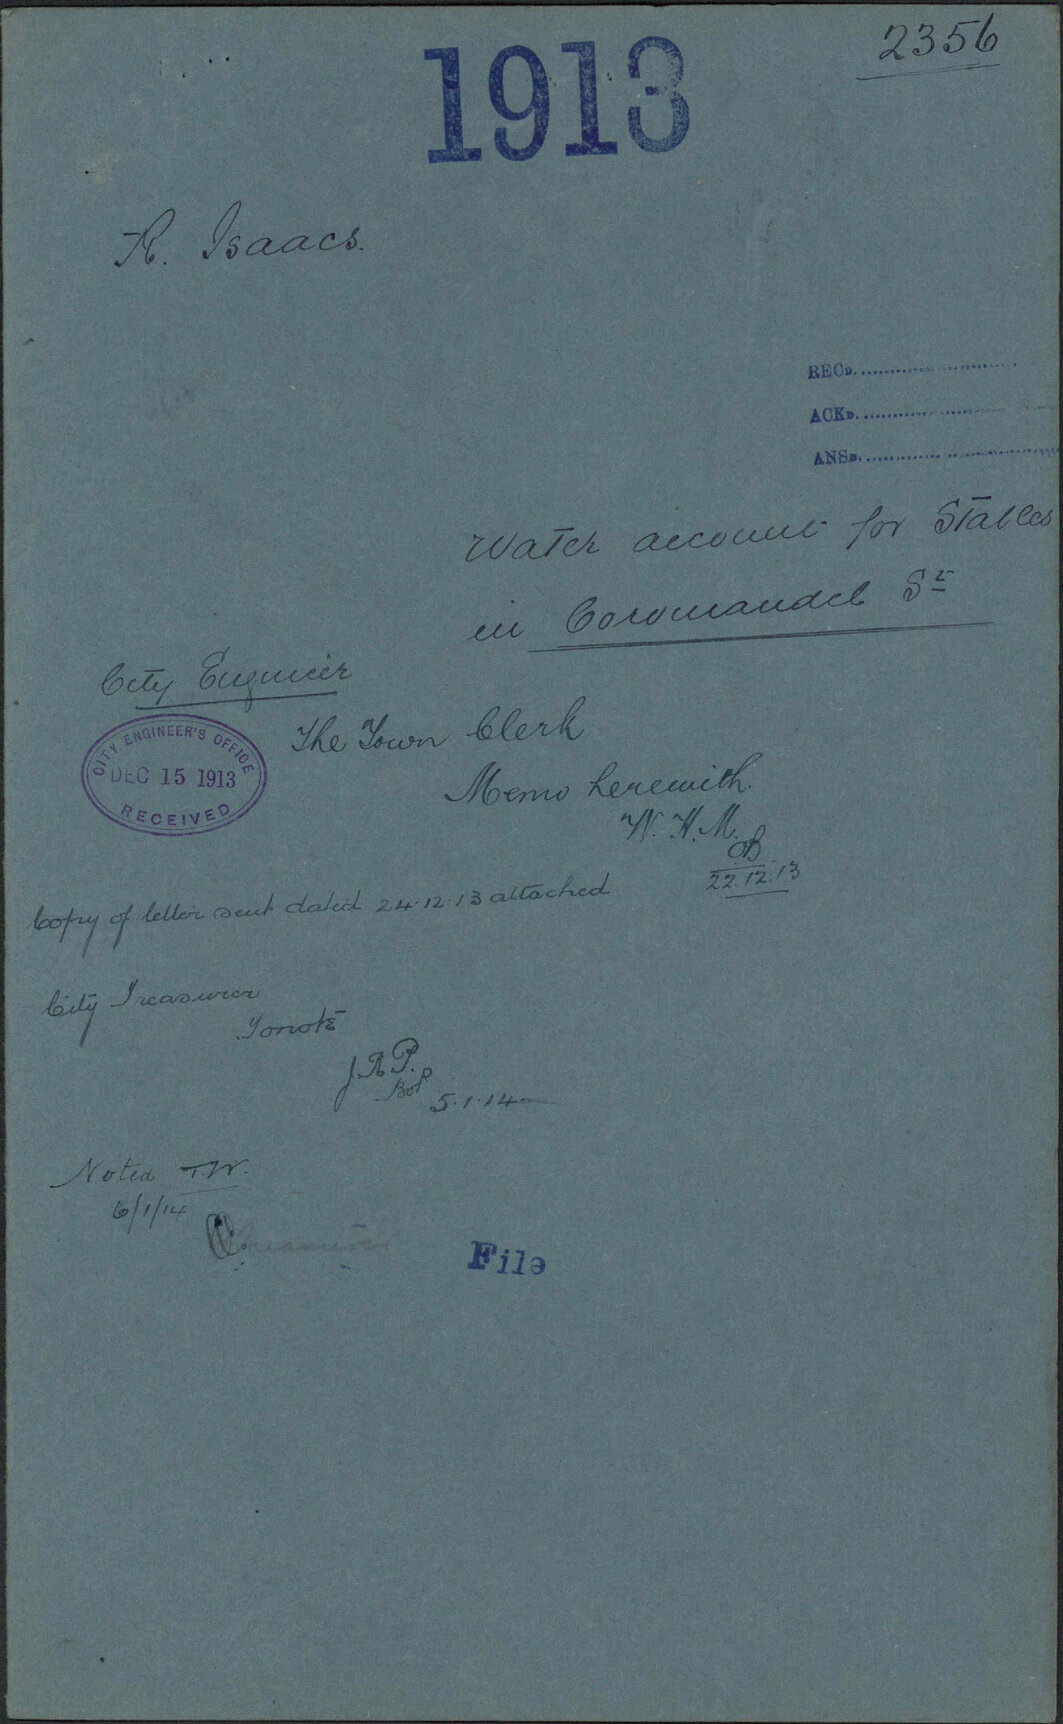 2356
1913
A. Isaacs.
RECD.
ACKD.
ANSD.
Water account for Stables
in Coromandel St
City Engineer
The Town Clerk
CITY ENGINEER'S OFFICE
DEC 15 1913
RECEIVED
Memo herewith.
W. H. M.
22.12.13
Copy of letter sent dated 24.12.13 attached
City Treasurer
To note
J.R.P.
5.1.14
Noted T.W.
6/1/14
File